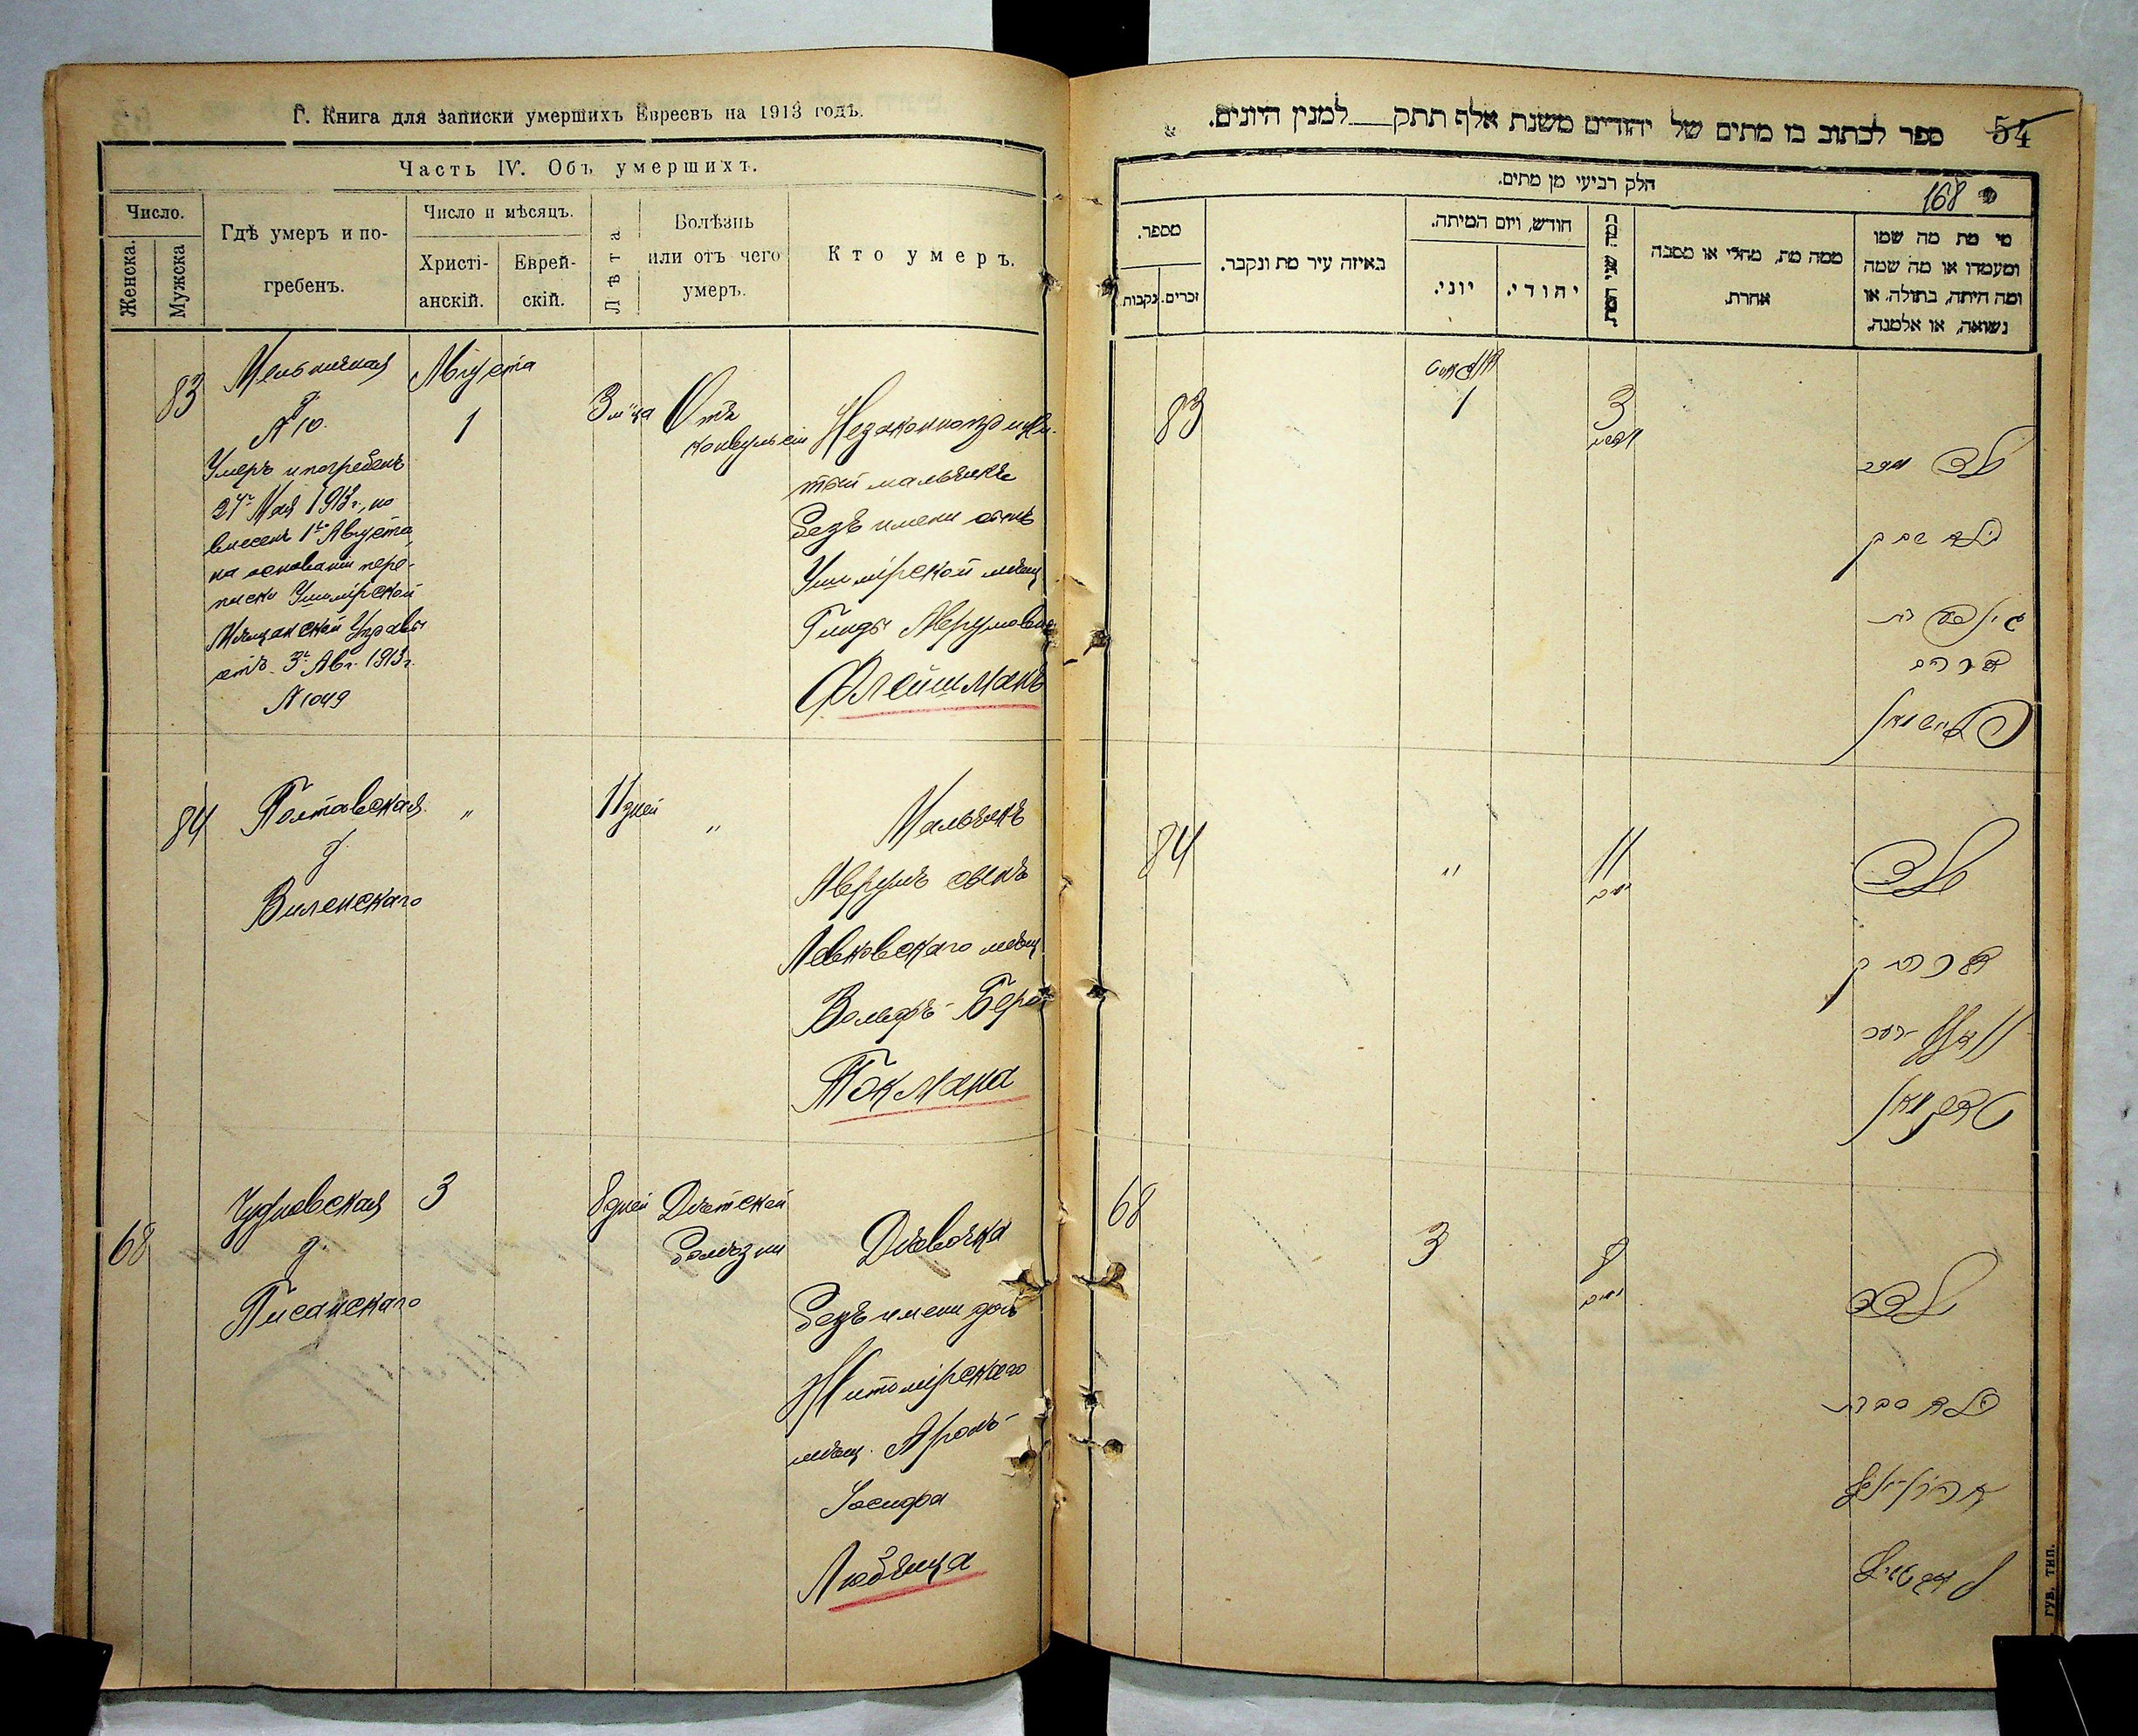 Г. Книга для записки умершихъ Евреевъ на 1913 годъ.
Часть IV. Объ умершихъ.
Число.
Женска.
Мужска
Гдѣ умеръ и по-
гребенъ.
Число и мѣсяцъ.
Христі-
анскій.
Еврей-
скій.
Лѣта
Болѣзнь
или отъ чего
умеръ.
Кто умеръ.
83
Мельничная
д.
№ 10.
Умеръ и погребенъ
27го Мая 1913 г., но
внесенъ 1го Августа
на основаніи пере-
писки Ушомірской
Мѣщанской Управы
отъ 3го Авг. 1913 г.
№ 1049
Августа
1
3 м-ца
Отъ
конвульсіи
Незаконнорожден-
ный мальчикъ
безъ имени сынъ
Ушомірской мѣщ.
Гинды Аврумовны
Флейшманъ
84
Полтавская
д.
Виленскаго
"
11 дней
"
Мальчикъ
Аврумъ сынъ
Левковскаго мѣщ.
Вольфъ-Бера
Токмана
68
Чудновская
д.
Писанскаго
3
8 дней
Дѣтской
болѣзни
Дѣвочка
безъ имени дочь
Житомірскаго
мѣщ. Аронъ-
Іосифа
54
ספר לכתוב בו מתים של יהודים משנת אלף תתק — למנין היונים.
168
חלק רביעי מן מתים.
מספר.
זכרים.
נקבות
באיזה עיר מת ונקבר.
חודש, ויום המיתה.
יוני.
יהודי.
כמה שני המת.
ממה מת, מחלי או מסבה
אחרת.
מי מת מה שמו
ומעמדו או מה שמה
ומה היתה, בתולה, או
נשואה, או אלמנה.
83
אווגוסט
1
3
ילד
פליישמאן
84
"
11
ימים
ילד
אברהם בן
וואלף בער
טאקמאן
68
3
8
ימים
ילדה
בלא שם בת
אהרן יוסף
ГУБ. ТИП.